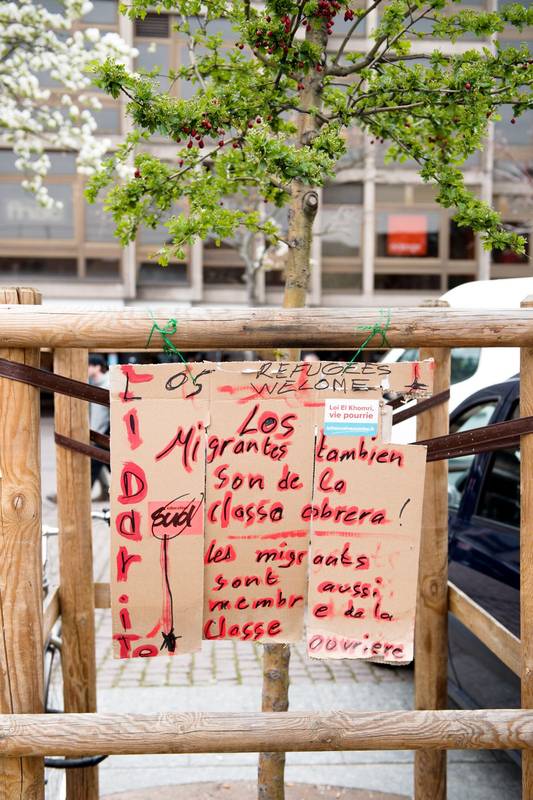 REFUGEES
WELOME
Loi El Khomri,
vie pourrie
Los
Migrantes tambien
son de la
classa obrera !
les migrants
sont aussi
membre de la
classe ouvriere
Sud
orange